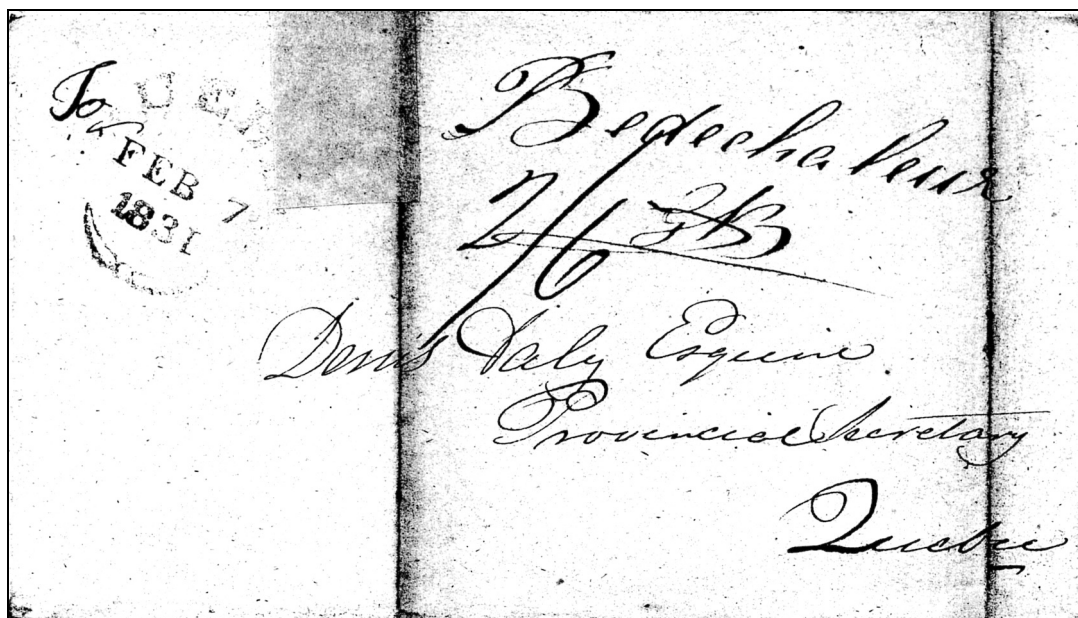 To
UEB
FEB 7
1831
Bedechaleur
2/6
Denis Daly Esquire
Provincial Secretary
Quebec